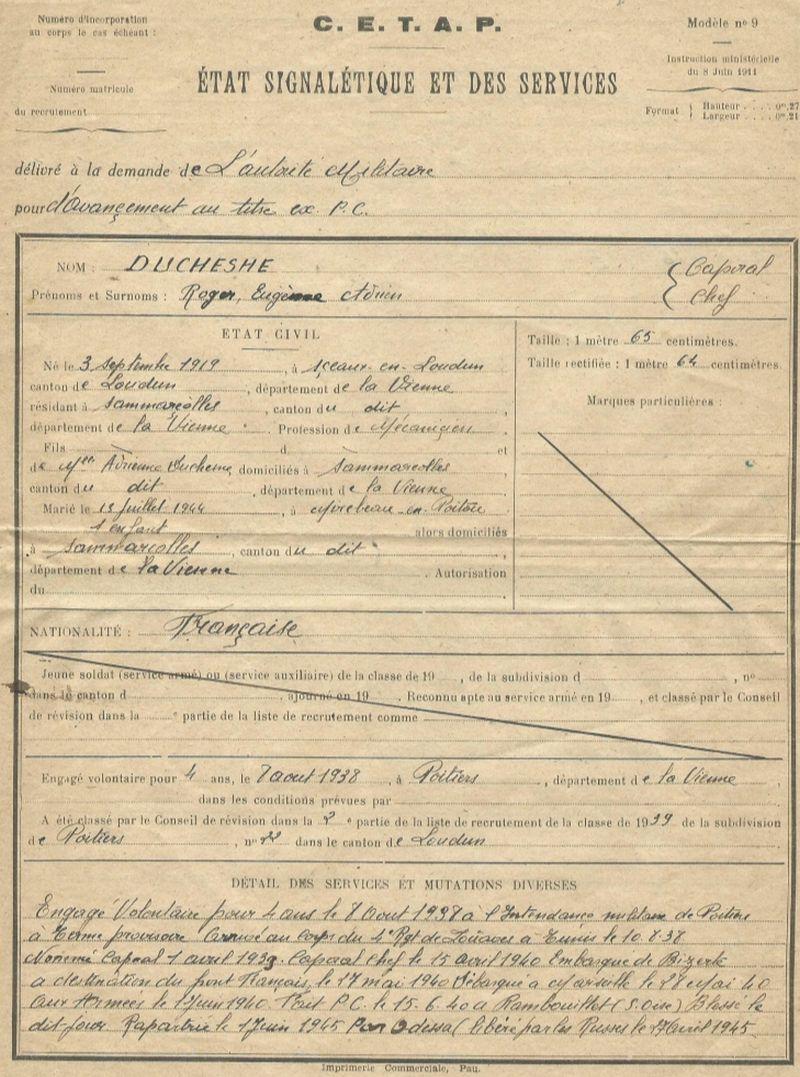 Numéro d'incorporation
au corps le cas échéant :
C. E. T. A. P.
Modèle n° 9
Instruction ministérielle
du 8 Juin 1911
Numéro matricule
du recrutement
ÉTAT SIGNALÉTIQUE ET DES SERVICES
Format Hauteur . . . . 0m,27
Largeur . . . . 0m,21
délivré à la demande de L'autorité Militaire
pour d'avançement au titre ex. P.C.
NOM : DUCHESNE
Caporal
Prénoms et Surnoms : Roger, Eugène Adrien
Chef
ETAT CIVIL
Né le 3 septembre 1919, à Sceaux-en-Loudun
canton de Loudun, département de la Vienne
résidant à Sammarcolles, canton du dit,
département de la Vienne. Profession de Mécanicien
Fils d et
de Adrienne Duchesne, domiciliés à Sammarcolles
canton du dit, département de la Vienne
Marié le Juillet 1944, à Mirebeau-en-Poitou
1 enfant alors domiciliés
à Sammarcolles, canton du dit,
département de la Vienne. Autorisation
du
Taille : 1 mètre 65 centimètres.
Taille rectifiée : 1 mètre 64 centimètres.
Marques particulières :
NATIONALITÉ : Française
Jeune soldat (service armé) ou (service auxiliaire) de la classe de 19 , de la subdivision d , n°
dans le canton d . ajourné en 19 . Reconnu apte au service armé en 19 , et classé par le Conseil
de révision dans la e partie de la liste de recrutement comme
Engagé volontaire pour 4 ans, le 8 aout 1938, à Poitiers, département de la Vienne,
dans les conditions prévues par
A été classé par le Conseil de révision dans la 2e partie de la liste de recrutement de la classe de 1939 de la subdivision
de Poitiers, n° 22 dans le canton de Loudun
DÉTAIL DES SERVICES ET MUTATIONS DIVERSES
Engagé Volontaire pour 4 ans le 8 Aout 1938 à l'Intendance militaire de Poitiers
à terme provisoire Arrivé au Corps du 4e Rgt de Zouaves à Tunis le 10.8.38
Nommé Caporal 1 avril 1939. Caporal Chef le 15 avril 1940 Embarqué de Bizerte
a destination du front Français, le 27 mai 1940 Débarqué a Marseille le 28 Mai 40
Aux Armées le 1 Juin 1940. P.C. le 15.6.40 a Rambouillet (S.Oise) Blessé le
dit jour Rapatrié le 1 Juin 1945 Par Odessa (libéré par les Russes le avril 1945
Imprimerie Commerciale, Pau.